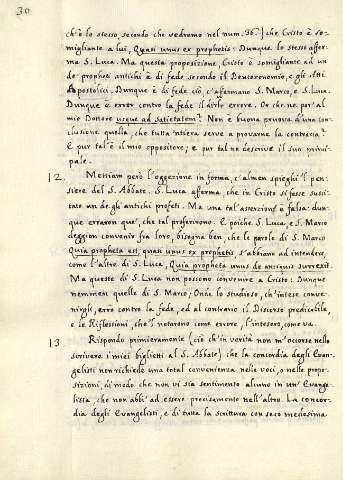 30
ch'è lo stesso, secondo che vedremo nel num. 36.) che Cristo è so-
migliante a lui, Quasi unus ex prophetis: Dunque lo stesso affer-
ma S. Luca. Ma questa proposizione, Cristo è somigliante ad un
de' propheti antichi è di fede secondo il Deuteronomio, e gli Atti
Apostolici: Dunque è di fede ciò, c'affermano S. Marco, e S. Luca.
Dunque è error contro la fede il dirlo errore. Or che ne par al
mio Donore usque ad satietatem? Non è buona pruova d'una con-
clusione quella, che tutta 'ntiera serve a provarne la contraria?
E pur tal è il mio oppositore; e pur tal ne descrive il suo princi-
pale.
12. Mettiam però l'oggezione in forma, c'almen spieghi 'l pen-
siere del S. Abbate. S. Luca afferma che in Cristo si fosse susci-
tato un de gli antichi profeti. Ma una tal'asserzione è falsa: dun-
que erraron que', che tal proferirono. E poiche S. Luca, e S. Marco
deggion convenir fra loro, bisogna ben, che le parole di S. Marco
Quia propheta est, quasi unus ex prophetis s'abbiano ad intendere,
come l'altre di S. Luca, Quia propheta unus de antiquis surrexit.
Ma queste di S. Luca non possono convenire a Cristo: Dunque
nemmen quelle di S. Marco; Onde lo studioso, ch'intese conve-
nirgli, errò contro la fede, ed al contrario il Discorso predicabile,
e le Riflessioni, che 'l notarono come errore, l'intesero, come va.
13 Rispondo primieramente (ciò ch'in verità non m'occorse nello
scrivere i miei biglietti al S. Abbate) che la concordia degli Evan-
gelisti non richiede una total convenienza nelle voci, o nelle propo-
sizioni, di modo che non vi sia sentimento alcuno in un' Evange-
lista, che non abbi' ad essere precisamento nell'altro. La concor-
dia degli Evangelisti, e di tutta la scrittura con seco medesima